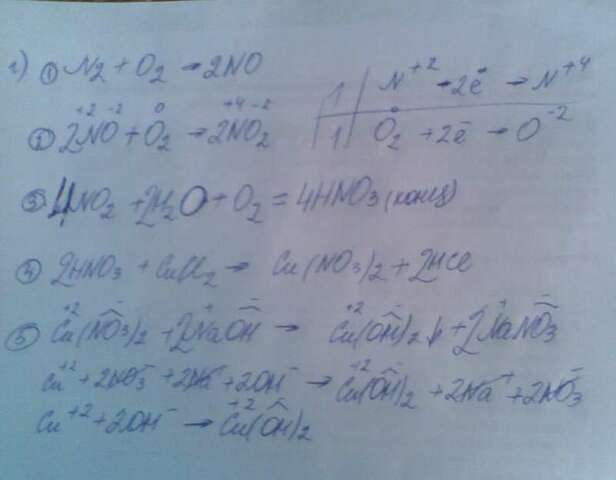 г) ① N₂ + O₂ → 2NO
② 2N⁺²O⁻² + O₂⁰ → 2N⁺⁴O₂⁻²
1 | N⁺² - 2ē → N⁺⁴
1 | O₂⁰ + 2ē → O⁻²
③ 4NO₂ + 2H₂O + O₂ = 4HNO₃ (конц)
④ 2HNO₃ + CuCl₂ → Cu(NO₃)₂ + 2HCl
⑤ Cu⁺²(NO₃⁻)₂ + 2Na⁺OH⁻ → Cu⁺²(OH⁻)₂↓ + 2Na⁺NO₃⁻
Cu⁺² + 2NO₃⁻ + 2Na⁺ + 2OH⁻ → Cu⁺²(OH⁻)₂ + 2Na⁺ + 2NO₃⁻
Cu⁺² + 2OH⁻ → Cu⁺²(OH⁻)₂